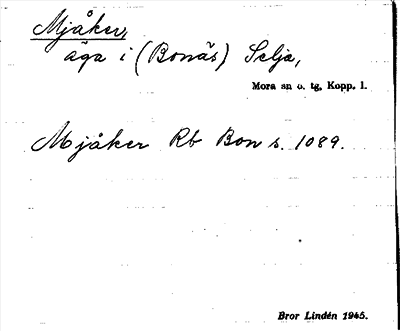 Mjåker,
äga i (Bonäs) Selja,
Mora sn o. tg, Kopp. l.
Mjåker Rb Bon s. 1089.
Bror Lindén 1945.